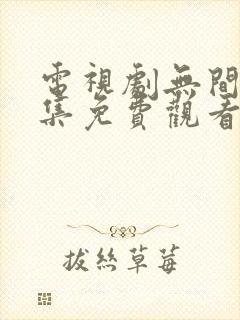 電視劇無間
集免費觀看
拔絲草莓